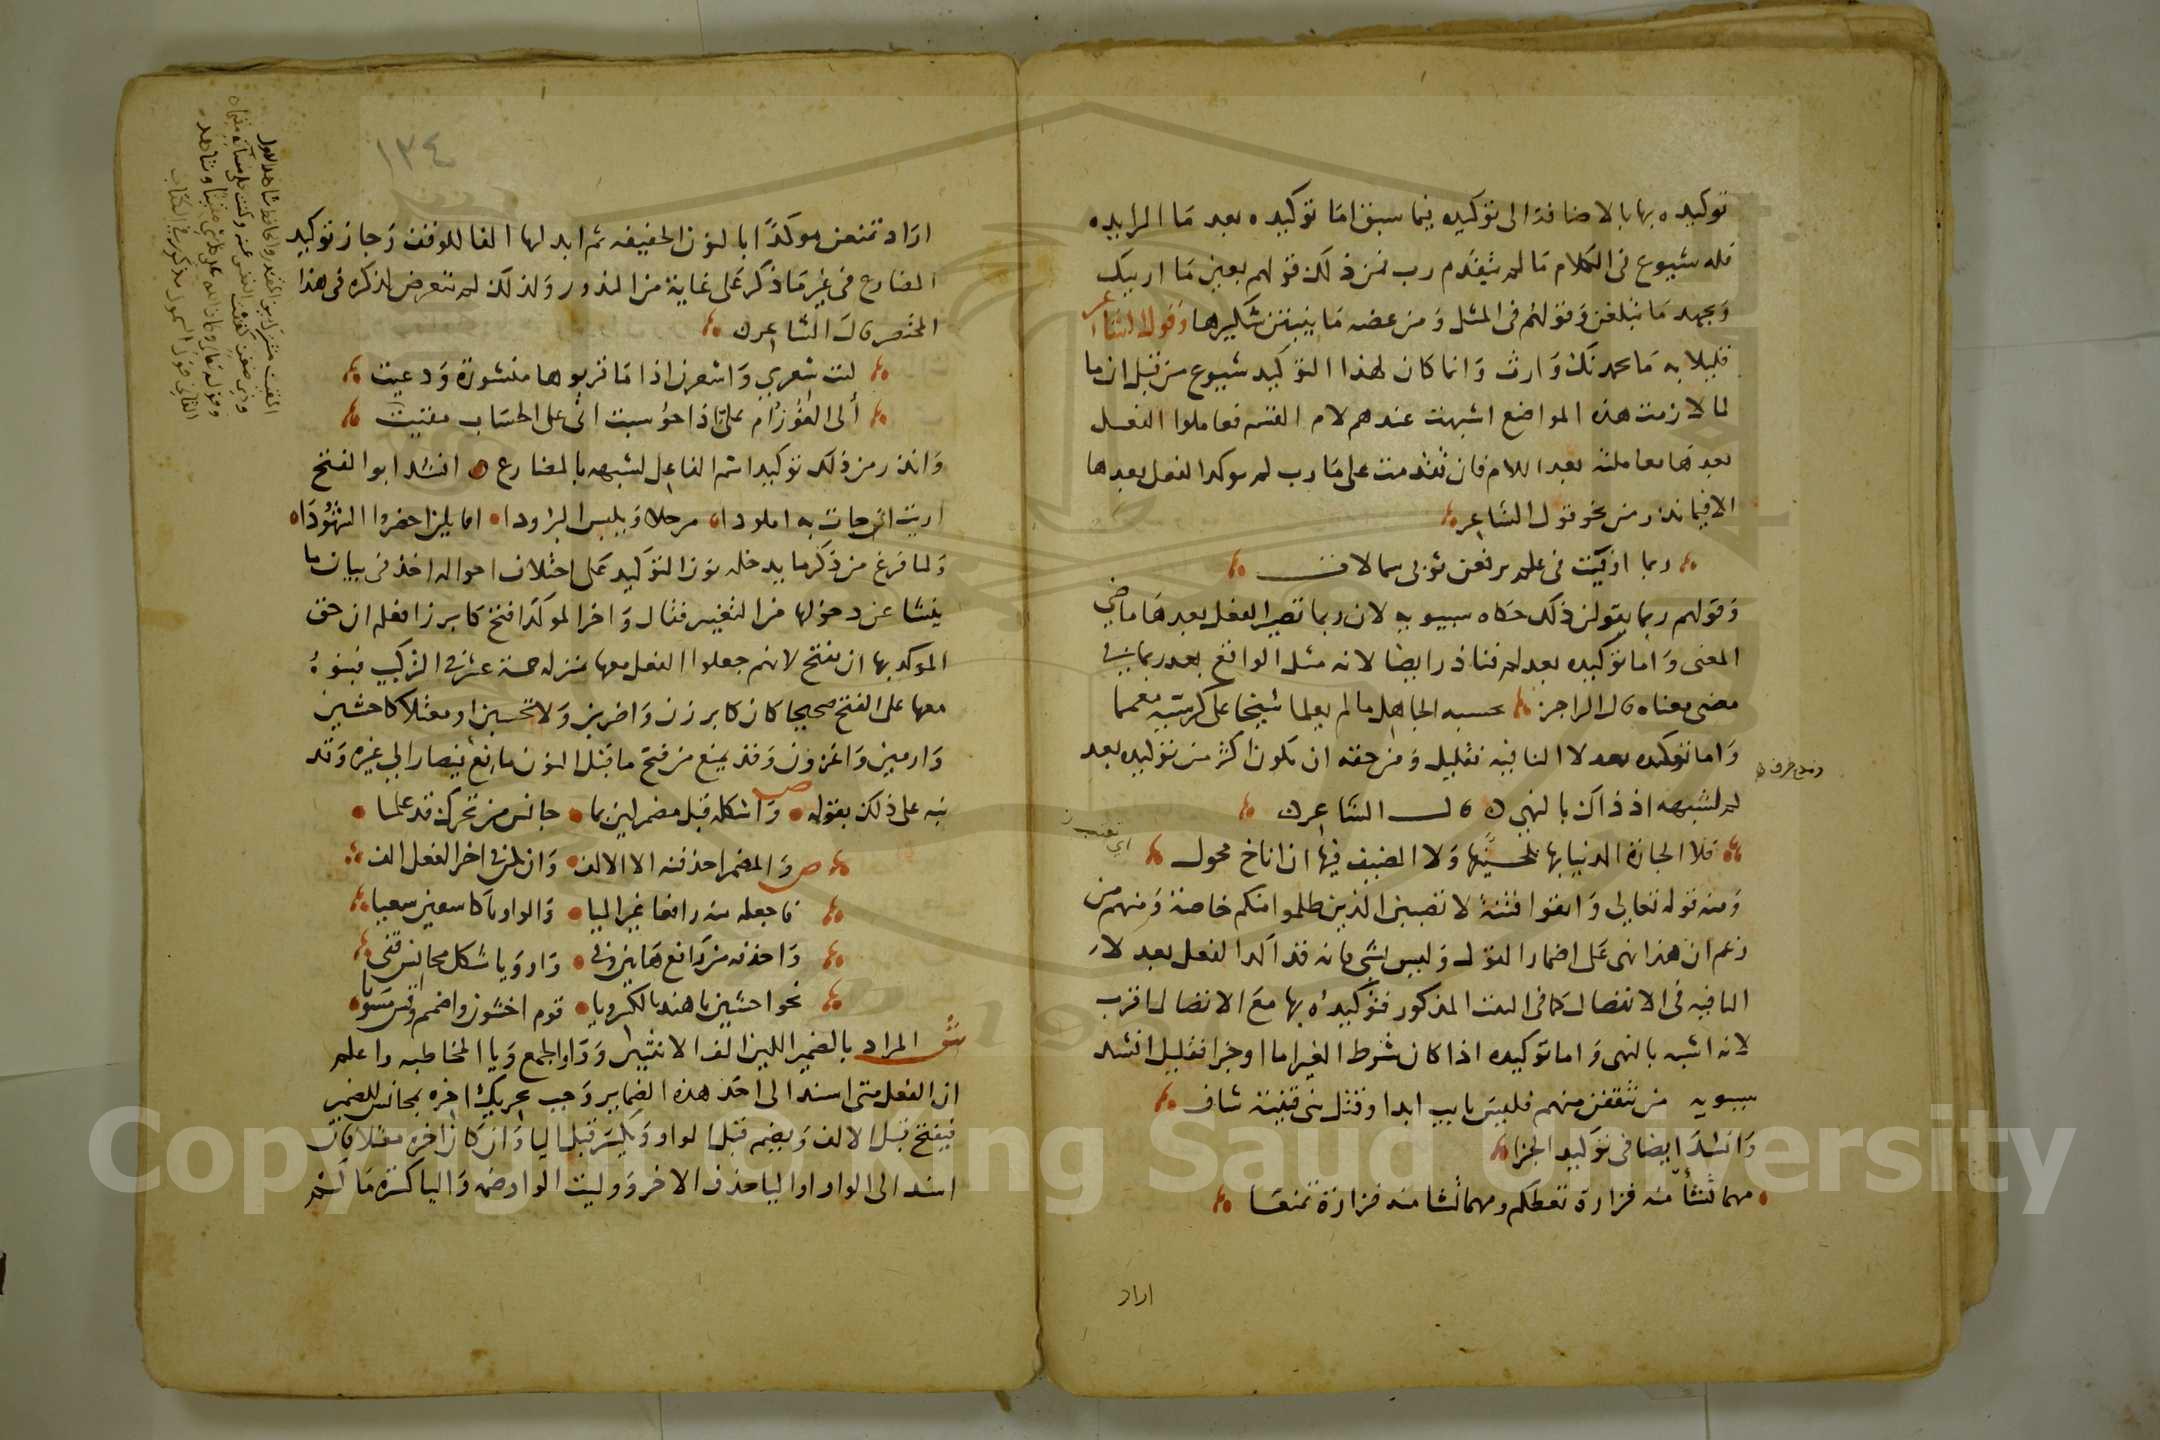 توكيده بها بالاضافة الى توكيده فيما سبق اما توكيده بعد ما الزايده
فله شيوع فى الكلام ما لم يتقدم رب فمن ذلك قولهم بعين ما ارينك
وبجهد ما تبلغن وقولهم فى المثل ومن عضه ما ينبتن شكيرها وقول الشاعر
قليلا به ما يحمدنك وارث وانما كان لهذا التوكيد شيوع من قبل ان ما
لما لازمت هذه المواضع اشبهت عندهم لام القسم فعاملوا الفعل
بعدها معاملته بعد اللام فان تقدمت على ما رب لم يوكد الفعل بعدها
الا فيما ندر من نحو قول الشاعر
ربما اوفيت فى علم ترفعن ثوبى شمالات
وقولهم ربما يقولن ذلك حكاه سيبويه لان ربما تصير الفعل بعدها ماضي
المعنى واما توكيده بعد لم فنادر ايضا لانه مثل الواقع بعد ربما فى
مضى معناه قال الراجز يحسبه الجاهل ما لم يعلما شيخا على كرسيه معمما
واما توكيده بعد لا النافيه فقليل ومن حقه ان يكون اكثر من توكيده بعد
لم لشبهه اذ ذاك بالنهى قال الشاعر
فلا الجارة الدنيا بها تلحينها ولا الضيف فيها ان اناخ محول
ومنه قوله تعالى واتقوا فتنة لا تصيبن الذين ظلموا منكم خاصة ومنهم من
زعم ان هذا نهى على اضمار القول وليس بشي فانه قد اكد الفعل بعد لا
النافيه فى الانفصال كما فى البيت المذكور فتوكيده بها مع الاتصال اقرب
لانه اشبه بالنهى واما توكيده اذا كان شرطا لغير اما او جزا فقليل انشد
سيبويه من تثقفن منهم فليس بايب ابدا وقتل بنى قتيبة شاف
وانشد ايضا فى توكيد الجزا
مهما تشأ منه فزارة تعطكم ومهما تشا منه فزارة تمنعا
اراد
١٣٤
اراد تمنعن موكدا بالنون الخفيفه ثم ابدلها الفا للوقف وجاز توكيد
المضارع فى غير ما ذكر على غاية من الندور ولذلك لم يتعرض لذكره فى هذا
المختصر قال الشاعر
ليت شعري واشعرن اذا ما قربوها منشورة ودعيت
ألى الفوز أم على اذا حوسبت انى على الحساب مقيت
واندر من ذلك توكيد اسم الفاعل لشبهه بالمضارع انشد ابو الفتح
اريت ان جات به املودا مرجلا ويلبس البرودا اقايلن احضروا الشهودا
ولما فرغ من ذكر ما يدخله نون التوكيد على اختلاف احواله اخذ فى بيان ما
ينشا عن دخولها من التغيير فقال واخر الموكد افتح كابرزا فعلم ان حق
الموكد بها ان يفتح لانهم جعلوا الفعل معها بمنزله خمسة عشر فى التركيب فبنوه
معها على الفتح صحيحا كان كابرزن واضربن ولا تحسبن او معتلا كاخشين
وارمين واغزون وقد يمنع من فتح ما قبل النون مانع فيصار الى غيره وقد
نبه على ذلك بقوله ص واشكله قبل مضمر لين بما جانس من تحرك قد علما
ص والمضمر احذفنه الا الالف وان يكن فى اخر الفعل الف
فاجعله منه رافعا غير اليا والواو ياء كاسعين سعيا
واحذفه من رافع هاتين وفى واو ويا شكل مجانس قفى
نحو اخشين يا هند بالكسر ويا قوم اخشون واضمم وقس مسويا
ش المراد بالضمير اللين الف الاثنين وواو الجمع ويا المخاطبه واعلم
ان الفعل متى اسند الى احد هذه الضماير وجب تحريك اخره بمجانس للضمير
فيفتح قبل الالف ويضم قبل الواو ويكسر قبل اليا وان كان اخره معتلا فان
اسند الى الواو او اليا حذف الاخر ووليت الواو ضمه واليا كسرة ما لم
Copyright © King Saud University